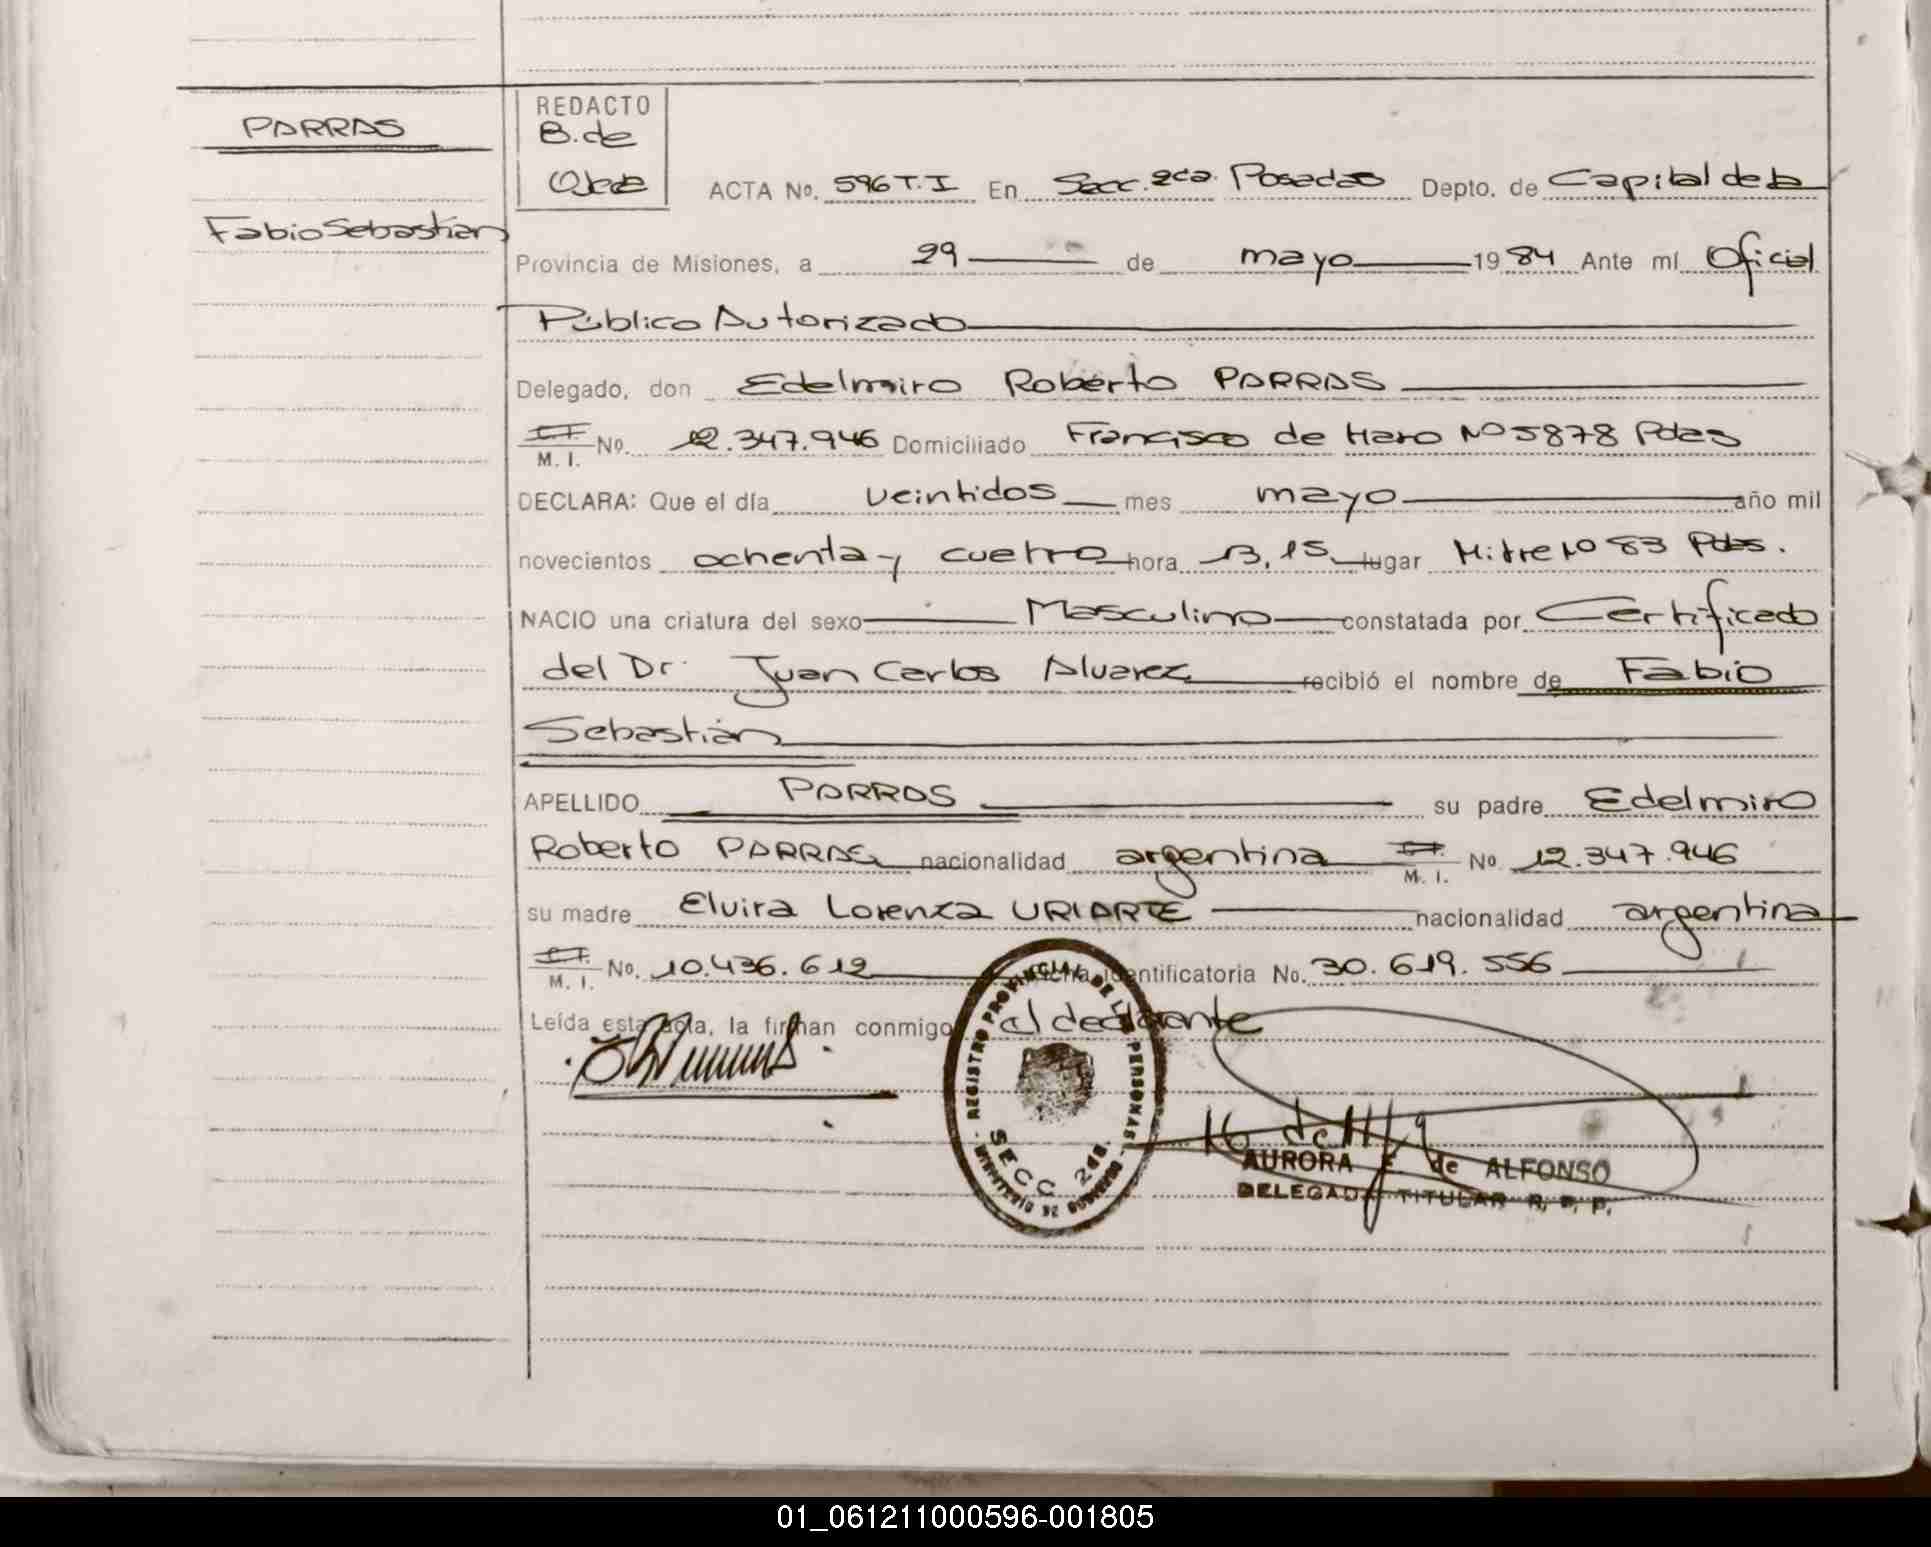 PARRAS
Fabio Sebastián
REDACTO
B. de
Ojeda
ACTA No. 596 T. I En Secc. 2da. Posadas Depto. de Capital de la
Provincia de Misiones, a 29 de mayo 1984 Ante mí Oficial
Público Autorizado
Delegado, don Edelmiro Roberto PARRAS
C.I. M. I. No. 12.347.946 Domiciliado Francisco de Haro Nº 5878 Pdas
DECLARA: Que el día veintidos mes mayo año mil
novecientos ochenta y cuatro hora 13,15 lugar Mitre Nº 83 Pdas.
NACIO una criatura del sexo Masculino constatada por Certificado
del Dr. Juan Carlos Alvarez recibió el nombre de Fabio
Sebastián
APELLIDO PARRAS su padre Edelmiro
Roberto PARRAS nacionalidad argentina C.I. M. I. No. 12.347.946
su madre Elvira Lorenza URIARTE nacionalidad argentina
C.I. M. I. No. 10.436.612 Ficha identificatoria No. 30.619.556
Leída esta acta, la firman conmigo el declarante
REGISTRO PROVINCIAL DE LAS PERSONAS
SECC 2da.
AURORA E. de ALFONSO
DELEGADA TITULAR R. P. P.
01_061211000596-001805